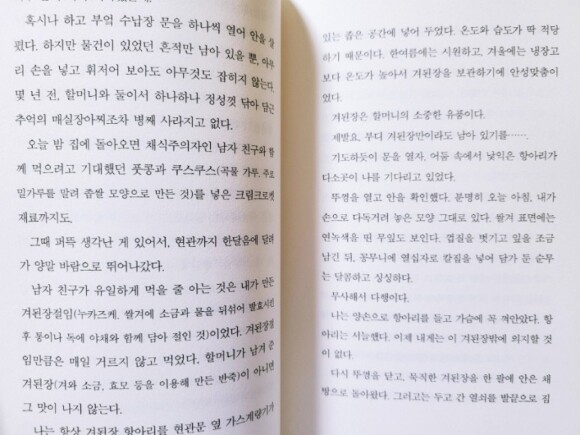 혹시나 하고 부엌 수납장 문을 하나씩 열어 안을 살
폈다. 하지만 물건이 있었던 흔적만 남아 있을 뿐, 아무
리 손을 넣고 휘저어 보아도 아무것도 잡히지 않는다.
몇 년 전, 할머니와 둘이서 하나하나 정성껏 닦아 담근
추억의 매실장아찌조차 병째 사라지고 없다.
오늘 밤 집에 돌아오면 채식주의자인 남자 친구와 함
께 먹으려고 기대했던 풋콩과 쿠스쿠스(곡물 가루, 주로
밀가루를 말려 좁쌀 모양으로 만든 것)를 넣은 크림크로켓
재료까지도.
그때 퍼뜩 생각난 게 있어서, 현관까지 한달음에 달려
가 양말 바람으로 뛰어나갔다.
남자 친구가 유일하게 먹을 줄 아는 것은 내가 만든
겨된장절임(누카즈케, 쌀겨에 소금과 물을 뒤섞어 발효시킨
후 통이나 독에 야채와 함께 담아 절인 것)이었다. 겨된장절
임만큼은 매일 거르지 않고 먹었다. 할머니가 남겨 준
겨된장(겨와 소금, 효모 등을 이용해 만든 반죽)이 아니면
그 맛이 나지 않는다.
나는 항상 겨된장 항아리를 현관문 옆 가스계량기가
있는 좁은 공간에 넣어 두었다. 온도와 습도가 딱 적당
하기 때문이다. 한여름에는 시원하고, 겨울에는 냉장고
보다 온도가 높아서 겨된장을 보관하기에 안성맞춤이
었다.
겨된장은 할머니의 소중한 유품이다.
제발요, 부디 겨된장만이라도 남아 있기를…….
기도하듯이 문을 열자, 어둠 속에서 낯익은 항아리가
다소곳이 나를 기다리고 있었다.
뚜껑을 열고 안을 확인했다. 분명히 오늘 아침, 내가
손으로 다독거려 놓은 모양 그대로 있다. 쌀겨 표면에는
연녹색을 띤 무잎도 보인다. 껍질을 벗기고 잎을 조금
남긴 뒤, 꽁무니에 열십자로 칼집을 넣어 담가 둔 순무
는 달콤하고 싱싱하다.
무사해서 다행이다.
나는 양손으로 항아리를 들고 가슴에 꼭 껴안았다. 항
아리는 서늘했다. 이제 내게는 이 겨된장밖에 의지할 것
이 없다.
다시 뚜껑을 닫고, 묵직한 겨된장을 한 팔에 안은 채
방으로 돌아왔다. 그러고는 두고 간 열쇠를 발끝으로 집